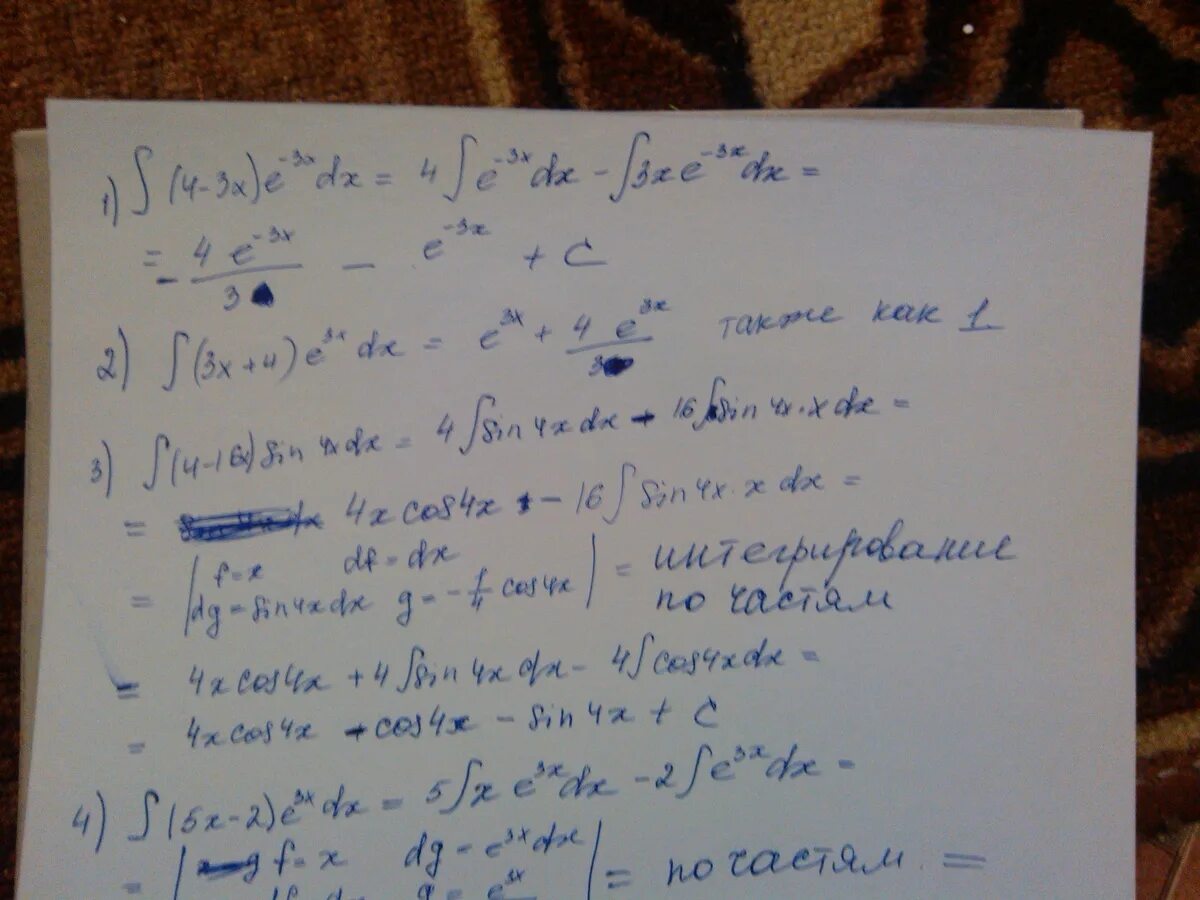 1) ∫(4-3x)e^{-3x}dx = 4∫e^{-3x}dx - ∫3xe^{-3x}dx =
= - \frac{4e^{-3x}}{3} - e^{-3x} + C
2) ∫(3x+4)e^{3x}dx = e^{3x} + \frac{4e^{3x}}{3} также как 1
3) ∫(4-16x)sin 4x dx = 4∫sin 4x dx - 16∫sin 4x·x dx =
= 4x cos4x - 16∫sin4x·x dx =
= | f=x df=dx
dg=sin4x dx g=-\frac{1}{4}cos4x | = интегрирование
по частям
= 4x cos4x + 4∫sin 4x dx - 4∫cos4x dx =
= 4x cos4x - cos4x - sin 4x + C
4) ∫(5x-2)e^{3x}dx = 5∫x e^{3x}dx - 2∫e^{3x}dx =
= | f=x dg=e^{3x}dx | = по частям =